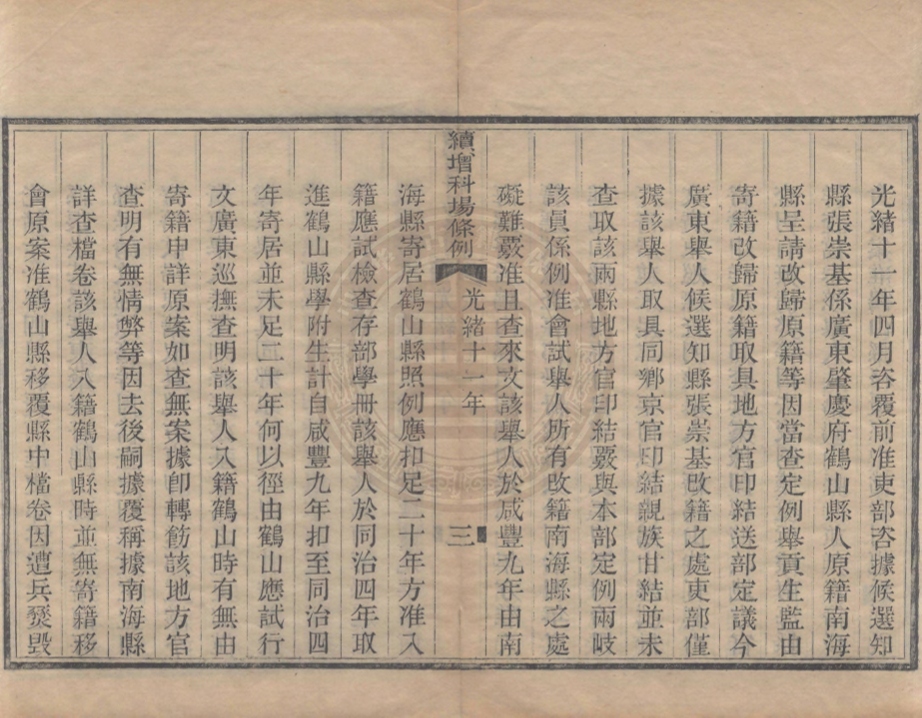 光緒十一年四月咨覆前准吏部咨據候選知
縣張崇基係廣東肇慶府鶴山縣人原籍南海
縣呈請改歸原籍等因當查定例舉貢生監由
寄籍改歸原籍取具地方官印結送部定議今
廣東舉人候選知縣張崇基改籍之處吏部僅
據該舉人取具同鄉京官印結親族甘結並未
查取該兩縣地方官印結覈與本部定例兩岐
該員係例准會試舉人所有改籍南海縣之處
礙難覈准且查來文該舉人於咸豐九年由南
續增科場條例 光緒十一年 三
海縣寄居鶴山縣照例應扣足二十年方准入
籍應試檢查存部學冊該舉人於同治四年取
進鶴山縣學附生計自咸豐九年扣至同治四
年寄居並未足二十年何以徑由鶴山應試行
文廣東巡撫查明該舉人入籍鶴山時有無由
寄籍申詳原案如查無案據卽轉飭該地方官
查明有無情弊等因去後嗣據覆稱據南海縣
詳查檔卷該舉人入籍鶴山縣時並無寄籍移
會原案准鶴山縣移覆縣中檔卷因遭兵燹毀